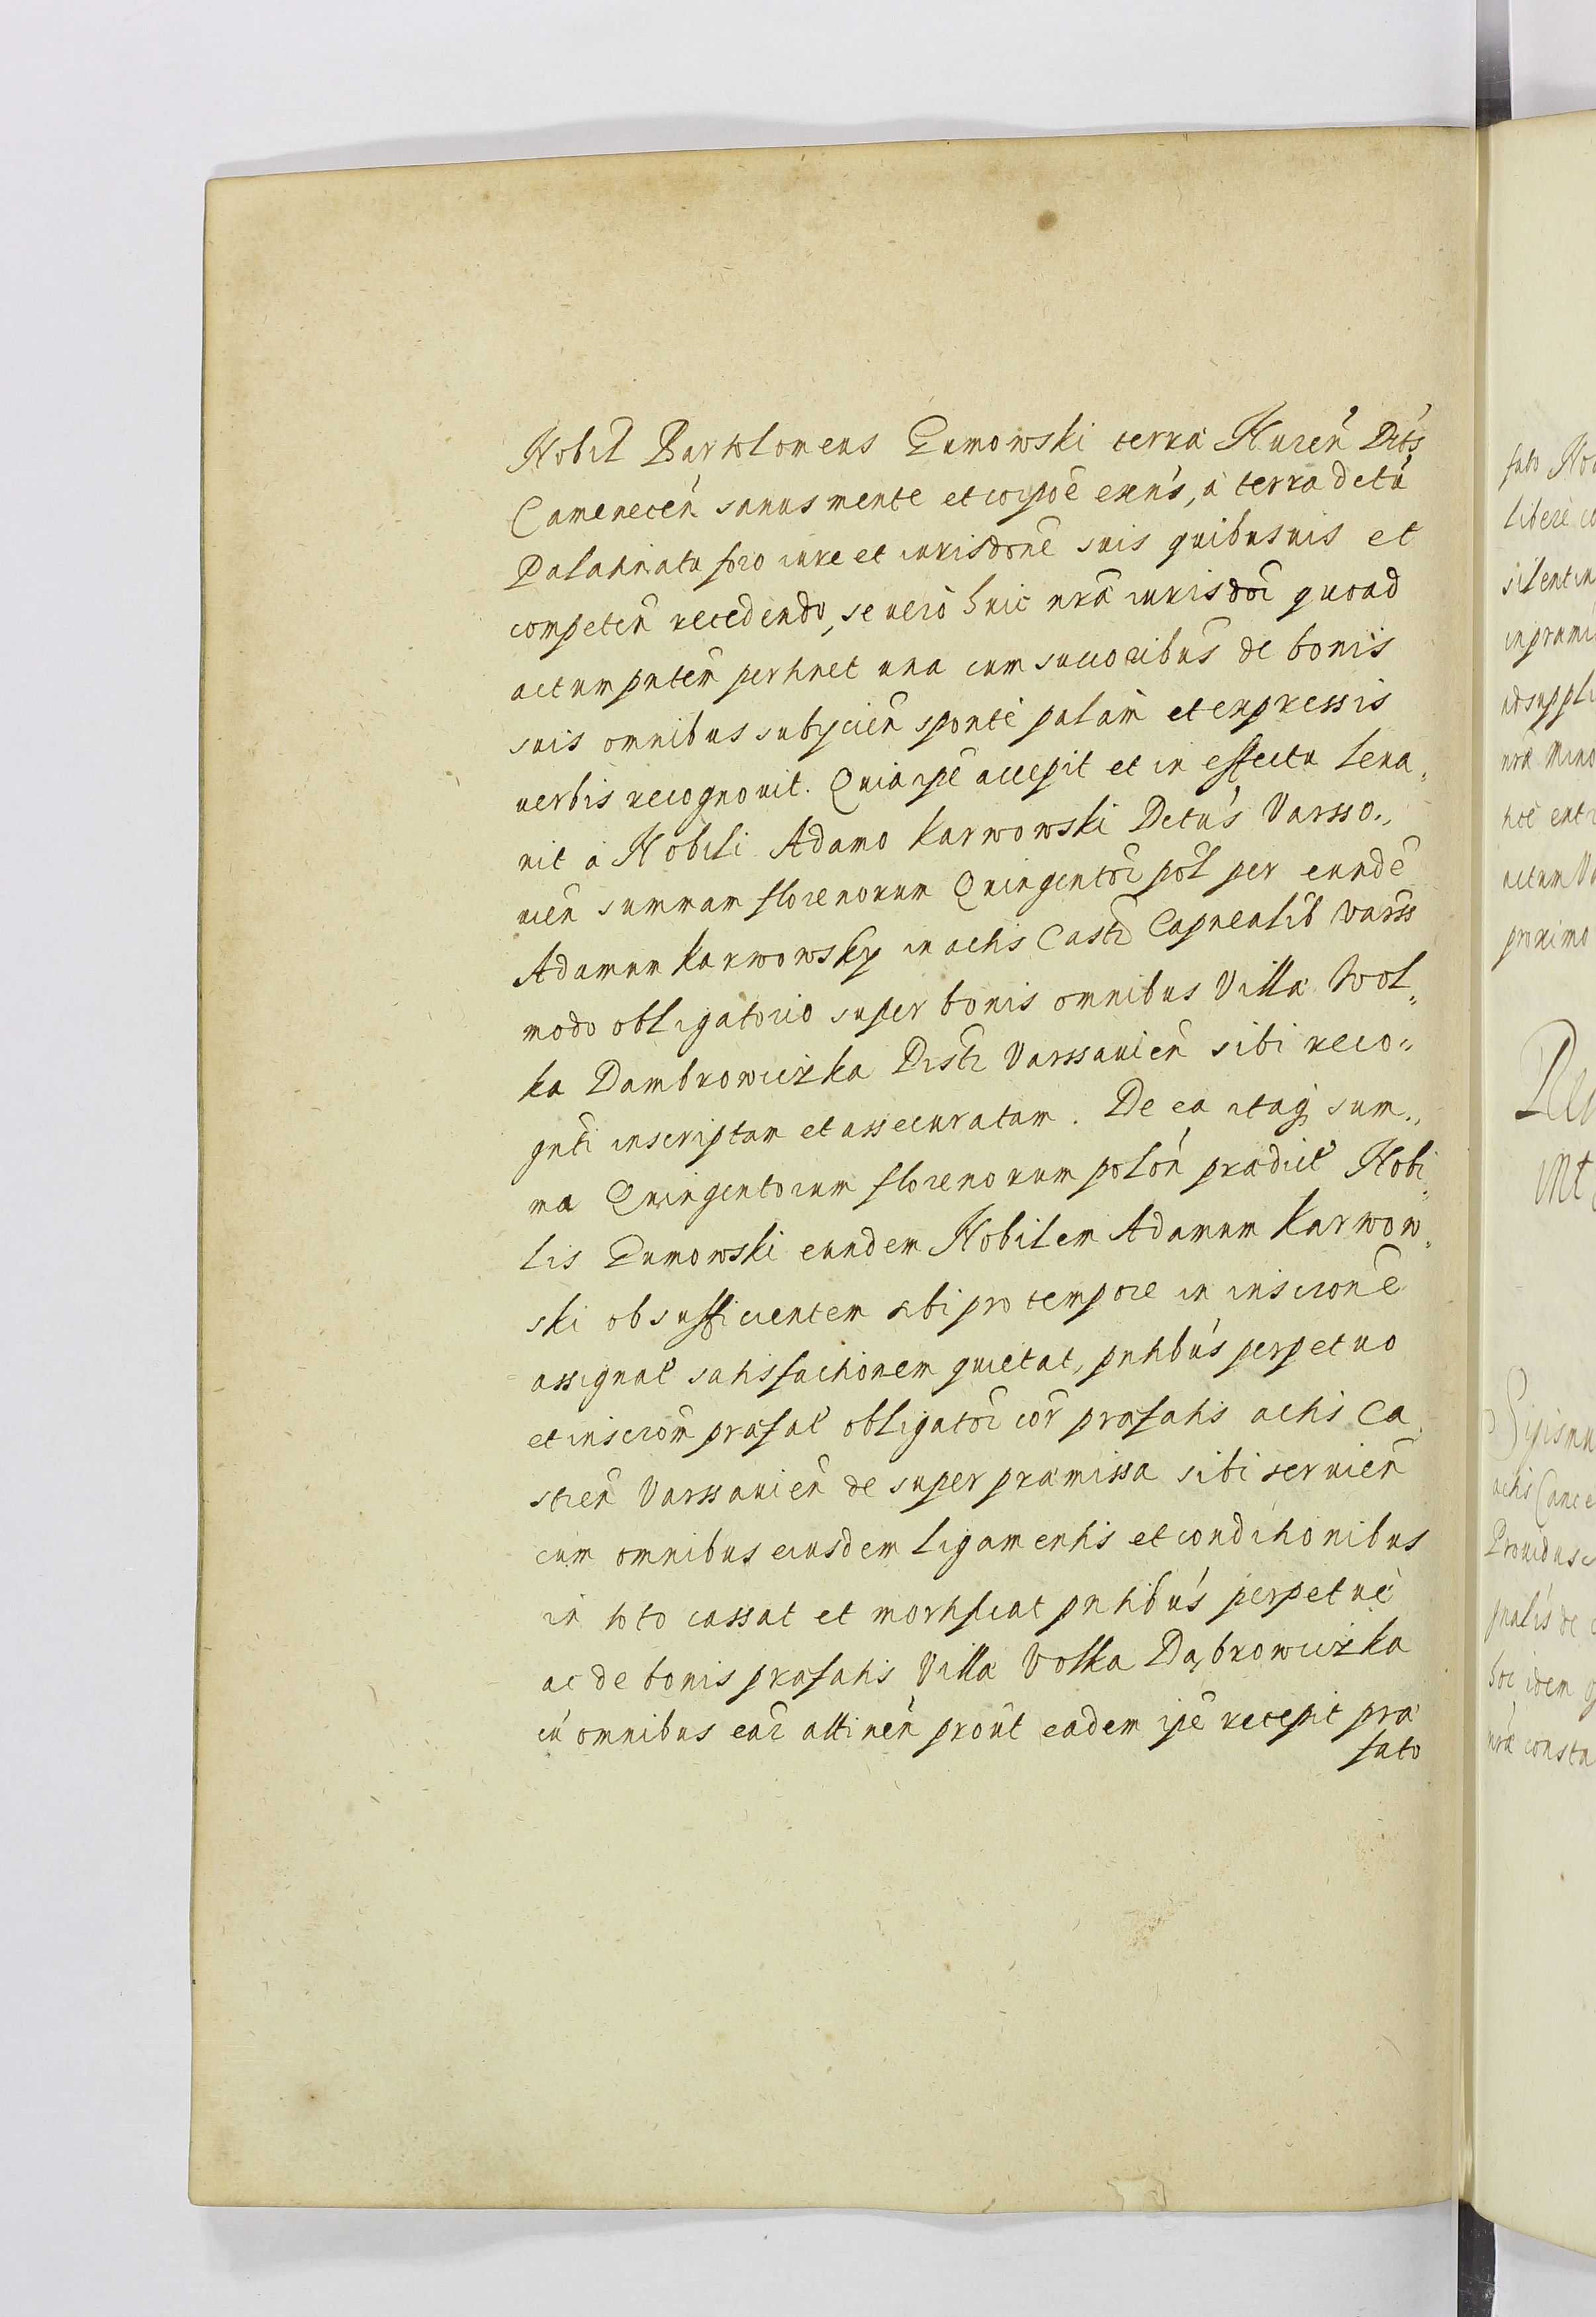 Nobil Bartolomeus Gumowski terræ Nuren̄ Dis
Camenecen̄ sanus mente et corpoē exn̄s, à terra detū
Palatinatu foro iure et iurisdonē suis quibusuis et
competen̄ recedendo, se uerò huic nrā iurisdoi quoad
actum pn̄tem pertinet una cum succoribus de bonis
suis omnibus subycien̄ spontè palàm et expressis
uerbis recognouit. Quia ipē accepit et in effectu leua„
uit à Nobili Adamo Karwowski Detu's Varsso„
uien̄ summam florenorum Quingentor̄ pol̄ per eundē
Adamum Karwowsky in actis Castr̄ Capnealib Varss
modo obligatorio super bonis omnibus Villæ Wol„
ka Dambrowiczka Distr̄ Varssauien̄ sibi reco„
gnti inscriptam et assecuratam. De ea itaq3 sum„
ma Quingentorum florenorum polon̄ prædict̄ Nobi„
lis Gumowski eundem Nobilem Adamum Karwow„
ski ob sufficientem sibi pro tempore in inscronē
assignat̄ satisfactionem quietat, pn̄tibus perpetuo
et inscrom̄ præfat̄ obligator̄ cor̄ præfatis actis Ca
stren̄ Varssauien̄ de super præmissa sibi seruien̄
cum omnibus eiusdem ligamentis et conditionibus
in toto cassat et mortificat pn̄tibus perpetuè
ac de bonis præfatis Villæ Volka Dąbrowiczka
cū omnibus ear̄ attinen̄ proùt eadem ipē recepit præ
fato
fato No
liberè co
silentiu
in præmi
ad suppl
nrā Mino
hēt ext
actum Va
proximo
Sigismu
actis Cance
Prouidus
pn̄alis de
hoc idem
nræ consta